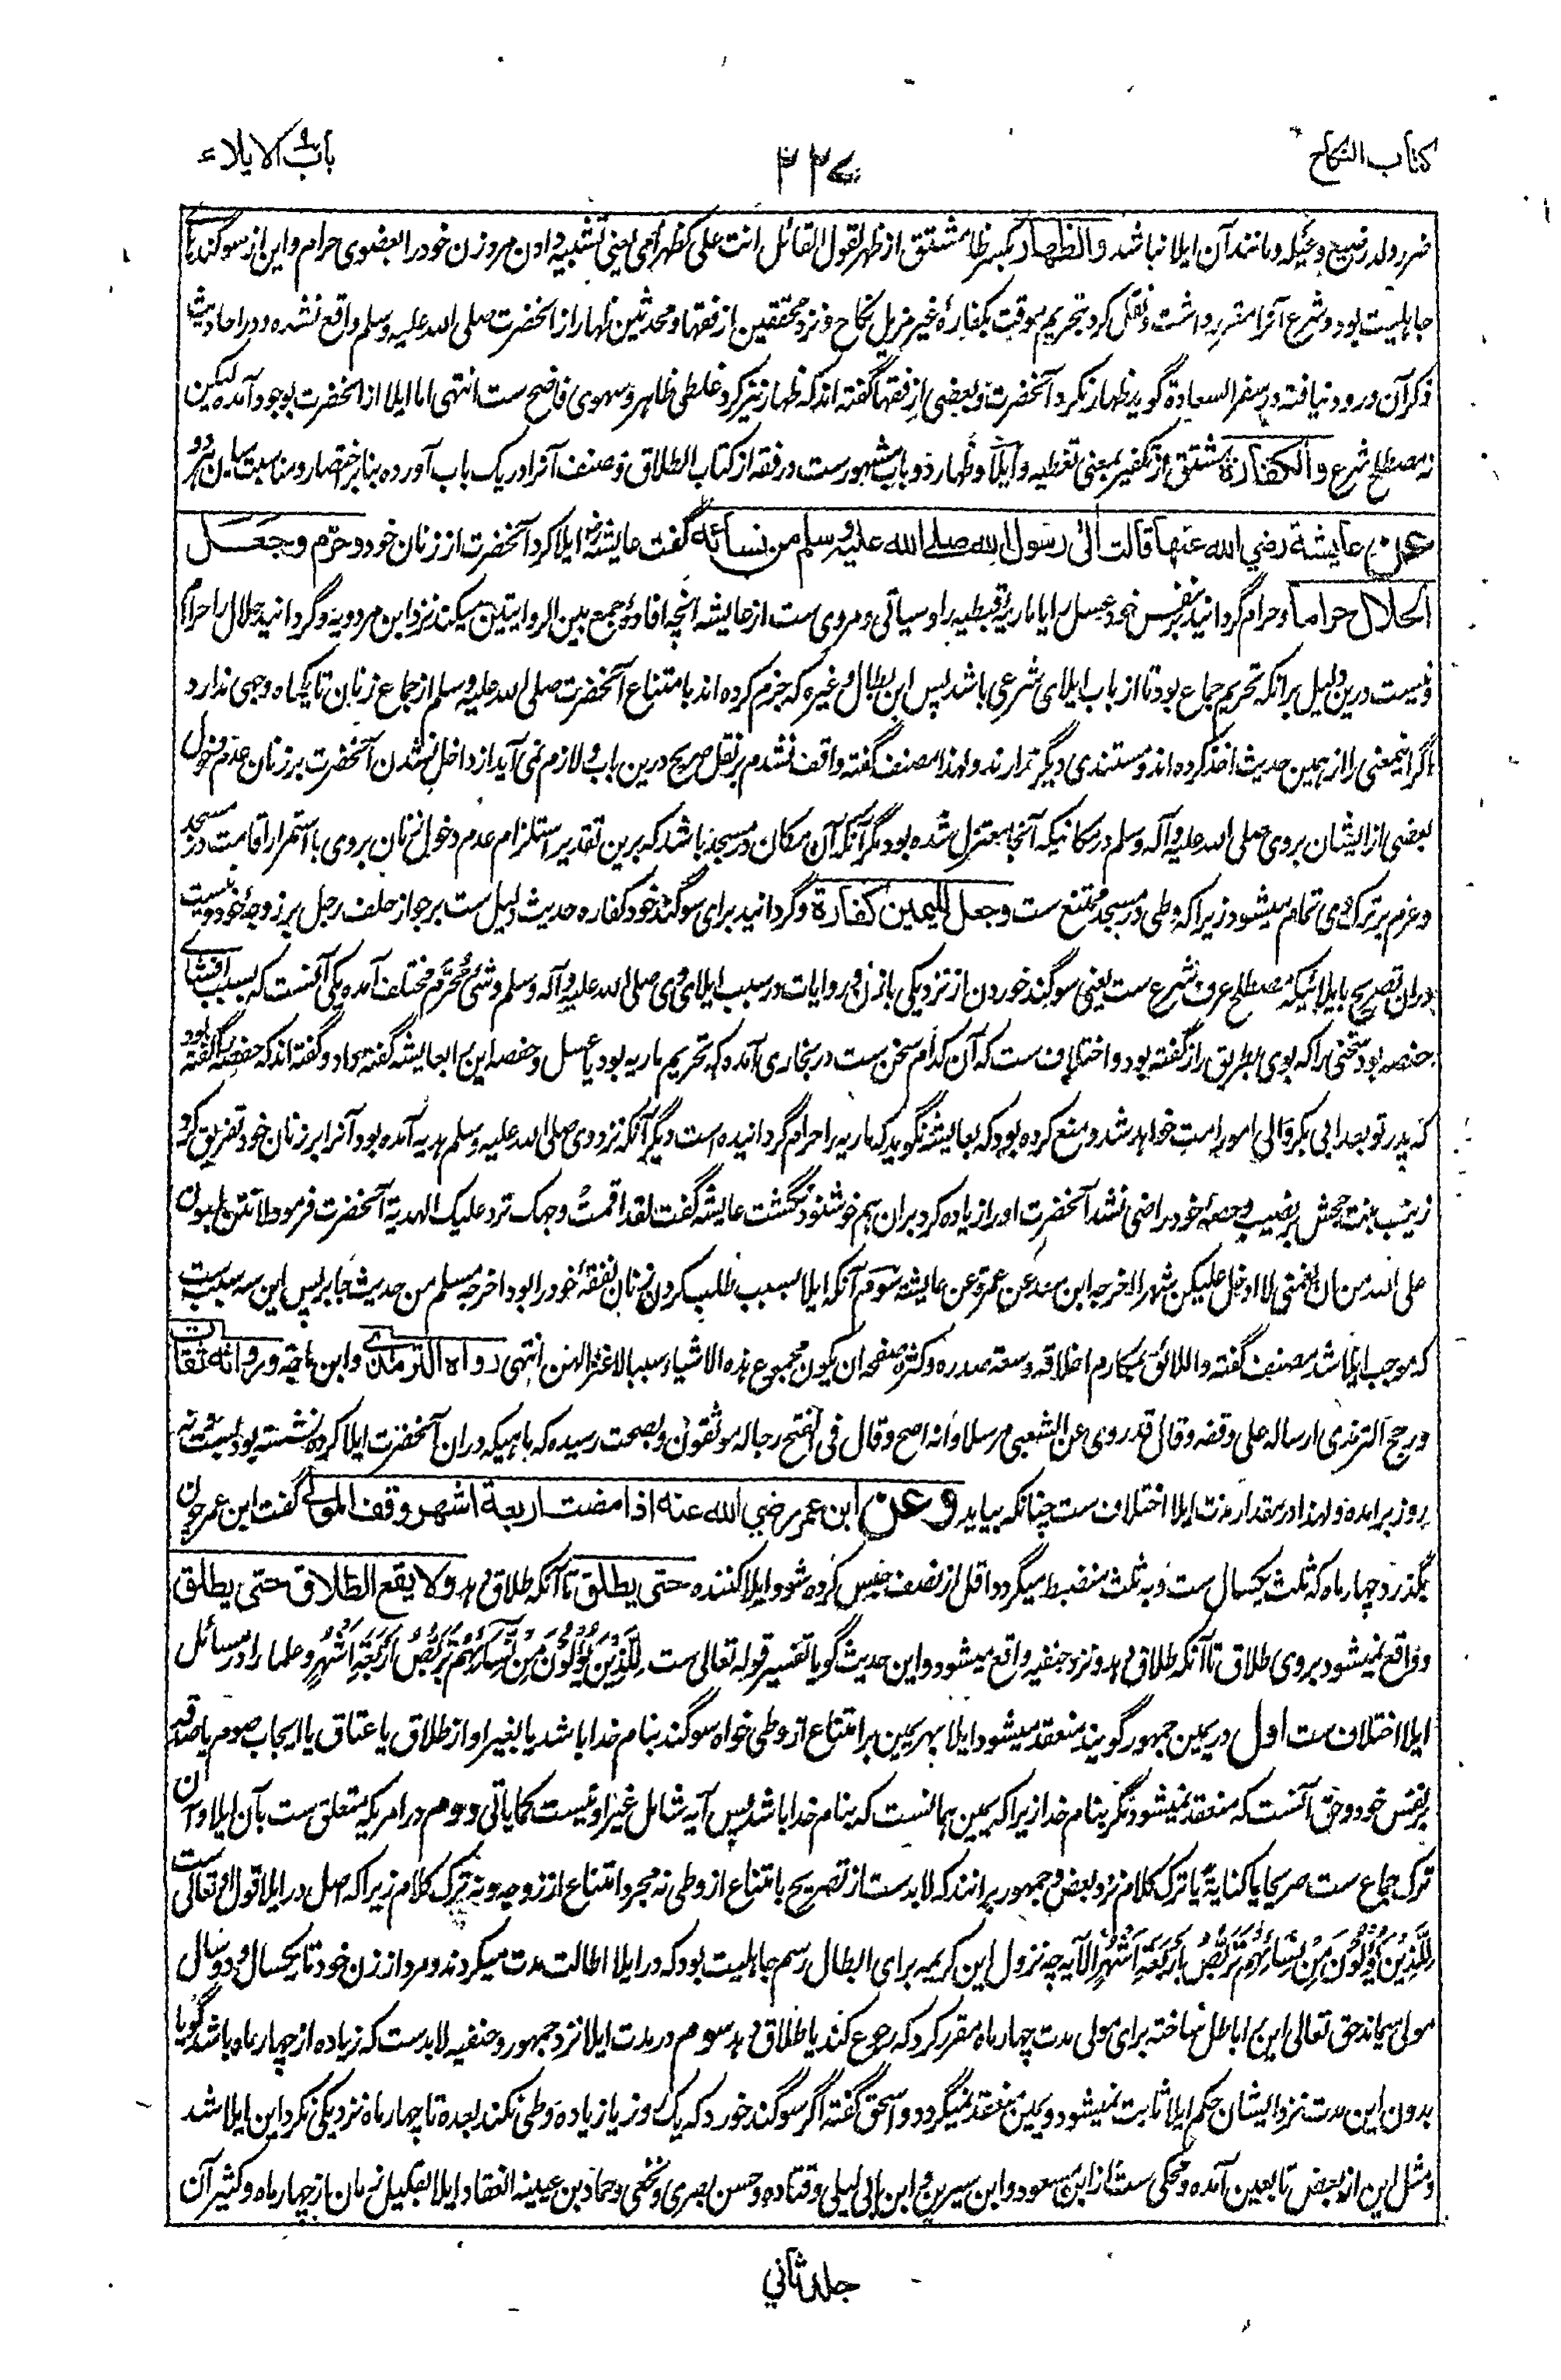 کتاب النکاح
۲۲۷
باب الایلاء
ضرر ولد رضیع وعیله ومانند آن ایلا نباشد والظهار بکسر ظا مشتق از ظهر لقول القائل انت علی کظهر امی یعنی تشبیه دادن مرد زن خود را بعضوی حرام واین از سوگندهای
جاهلیت بود وشرع آنرا مقرر داشت ونقل کرد بتحریم موقت بکفاره غیر مزیل نکاح ونزد محققین از فقها ومحدثین ظهار از آنحضرت صلی الله علیه وسلم واقع نشده ودر احادیث
ذکر آن ورود نیافته در سفر السعادة گوید ظهار نکرد آنحضرت وبعضی از فقها گفته اند که ظهار نیز کرد غلطی ظاهر وسهوی فاضح ست انتهی اما ایلا از آنحضرت بوجود آمده لیکن
نه مصطلح شرع والکفارة مشتق از تکفیر بمعنی تغطیه وایلا وظهار دو باب مشهورست در فقه از کتاب الطلاق ومصنف آنرا در یک باب آورده بنابر اختصار ومناسبت میان هر دو
عن عایشة رضي الله عنها قالت الی رسول الله صلے الله علیه وسلم من نسائه گفت عایشه رض ایلا کرد آنحضرت از زنان خود وحرم وجعل
الحلال حراما وحرام گردانید بنفس خود عسل را یا ماریه قبطیه را وسیاتی ومروی ست از عایشه آنچه افاده جمع بین الروایتین میکند نزد ابن مردویه وگردانید حلال را حرام
ونیست درین دلیل بر آنکه تحریم جماع بود تا از باب ایلای شرعی باشد پس ابن بطال وغیره که جزم کرده اند بامتناع آنحضرت صلی الله علیه وسلم از جماع زنان تا یکماه وجهی ندارد
اگر اینمعنی را از همین حدیث اخذ کرده اند ومستندی دیگر ندارند ولهذا مصنف گفته واقف نشدم بر نقل صریح درین باب ولازم نمی آید از داخل نشدن آنحضرت بر زنان عدم دخول
بعضی از ایشان بروی صلی الله علیه وآله وسلم در مکانیکه آنجا معتزل شده بود مگر آنکه آن مکان در مسجد باشد که برین تقدیر استلزام عدم دخول زنان بروی با استمرار اقامت در مسجد
وعزم بر ترک وی تمام میشود زیرا که وطی در مسجد ممتنع ست وجعل للیمین کفارة وگردانید برای سوگند خود کفاره حدیث دلیل ست بر جواز حلف رجل بر زوجه خود ونیست
دران تصریح بایلائیکه مصطلح عرف شرع ست یعنی سوگند خوردن از نزدیکی با زن وروایات در سبب ایلای وی صلی الله علیه وآله وسلم وشی محرم مختلف آمده یکی آنست که بسبب افشای
حفصه بود سخنی را که بوی بطریق راز گفته بود واختلاف ست که آن کدام سخن ست در بخاری آمده که تحریم ماریه بود یا عسل وحفصه این را بعایشه گفته داد وگفته اند که حفصه را گفته بود
که پدر تو بعد ابی بکر والی امور امت خواهد شد ومنع کرده بود که بعایشه نگوید که ماریه را حرام گردانیده است دیگر آنکه نزد وی صلی الله علیه وسلم هدیه آمده بود آنرا بر زنان خود تفریق کرد
زینب بنت جحش بر نصیب وحصه خود راضی نشد آنحضرت او را زیاده کرد بران هم خوشنود نگشت عایشه گفت لقد اقمت وجهک ترد علیک الهدیة آنحضرت فرمود لانتن اهون
علی الله من ان یغمنی لا ادخل علیکن شهرا اخرجه ابن سعد عن عمرة عن عایشه سوم آنکه ایلا بسبب طلب کردن زنان نفقه خود را بود اخرجه مسلم من حدیث جابر پس این سه سبب ست
که موجب ایلا شد مصنف گفته واللائق بمکارم اخلاقه وسعة صدره وکثرة صفحه ان یکون مجموع هذه الاشیاء سببا لاعتزالهن انتهی رواه الترمذے وابن ماجة ورواته ثقات
ورجح الترمذی ارساله علی وقفه وقال قد روی عن الشعبی مرسلا وانه اصح وقال فی الفتح رجاله موثقون وبصحت رسیده که ماهیکه دران آنحضرت ایلا کرده نشسته بود بیست ونه
روز برآمده ولهذا در مقدار مدت ایلا اختلاف ست چنانکه بیاید وعن ابن عمر رضي الله عنه اذا مضت اربعة اشهر وقف المولے گفت ابن عمر چون
بگذرد چهار ماه که ثلث یکسال ست وبه ثلث منضبط میگردد اقل از نصف حبس کرده شود ایلا کننده حتی یطلق تا آنکه طلاق دهد ولا یقع الطلاق حتی یطلق
وواقع نمیشود بروی طلاق تا آنکه طلاق دهد ونزد حنفیه واقع میشود واین حدیث گویا تفسیر قوله تعالی ست لِلَّذِیْنَ یُؤْلُوْنَ مِنْ نِّسَائِهِمْ تَرَبُّصُ اَرْبَعَةِ اَشْهُرٍ وعلما را در مسائل
ایلا اختلاف ست اول در یمین جمهور گویند منعقد میشود ایلا بهر یمین بر امتناع از وطی خواه سوگند بنام خدا باشد یا بغیر او از طلاق یا عتاق یا ایجاب صوم یا صدقه
بر نفس خود وحق آنست که منعقد نمیشود مگر بنام خدا زیرا که یمین همانست که بنام خدا باشد پس آیه شامل غیر او نیست کما یاتی دوم در امریکه متعلق ست بآن ایلا وآن
ترک جماع ست صریحا یا کنایة یا ترک کلام نزد بعض وجمهور برانند که لابدست از تصریح بامتناع از وطی نه مجرد امتناع از زوجه ونه ترک کلام زیرا که اصل در ایلا قول او تعالی ست
لِلَّذِیْنَ یُؤْلُوْنَ مِنْ نِّسَائِهِمْ تَرَبُّصُ اَرْبَعَةِ اَشْهُرٍ الآیه چه نزول این کریمه برای ابطال رسم جاهلیت بود که در ایلا اطالت مدت میکردند ومرد از زن خود تا یکسال ودو سال
مولی میماند حق تعالی این را باطل ساخته برای مولی مدت چهار ماه مقرر کرد که رجوع کند یا طلاق دهد سوم در مدت ایلا نزد جمهور وحنفیه لابدست که زیاده از چهار ماه باشد گویا
بدون این مدت نزد ایشان حکم ایلا ثابت نمیشود ویمین منعقد نمیگردد واسحق گفته اگر سوگند خورد که یک روز یا زیاده وطی نکند بعده تا چهار ماه نزدیکی نکرد این ایلا شد
ومثل این از بعض تابعین آمده ومحکی ست از ابن مسعود وابن سیرین وابن ابی لیلی وقتاده وحسن بصری ونخعی وحماد بن عیینه انعقاد ایلا بقلیل زمان از چهار ماه وکثیر آن
جلد ثاني